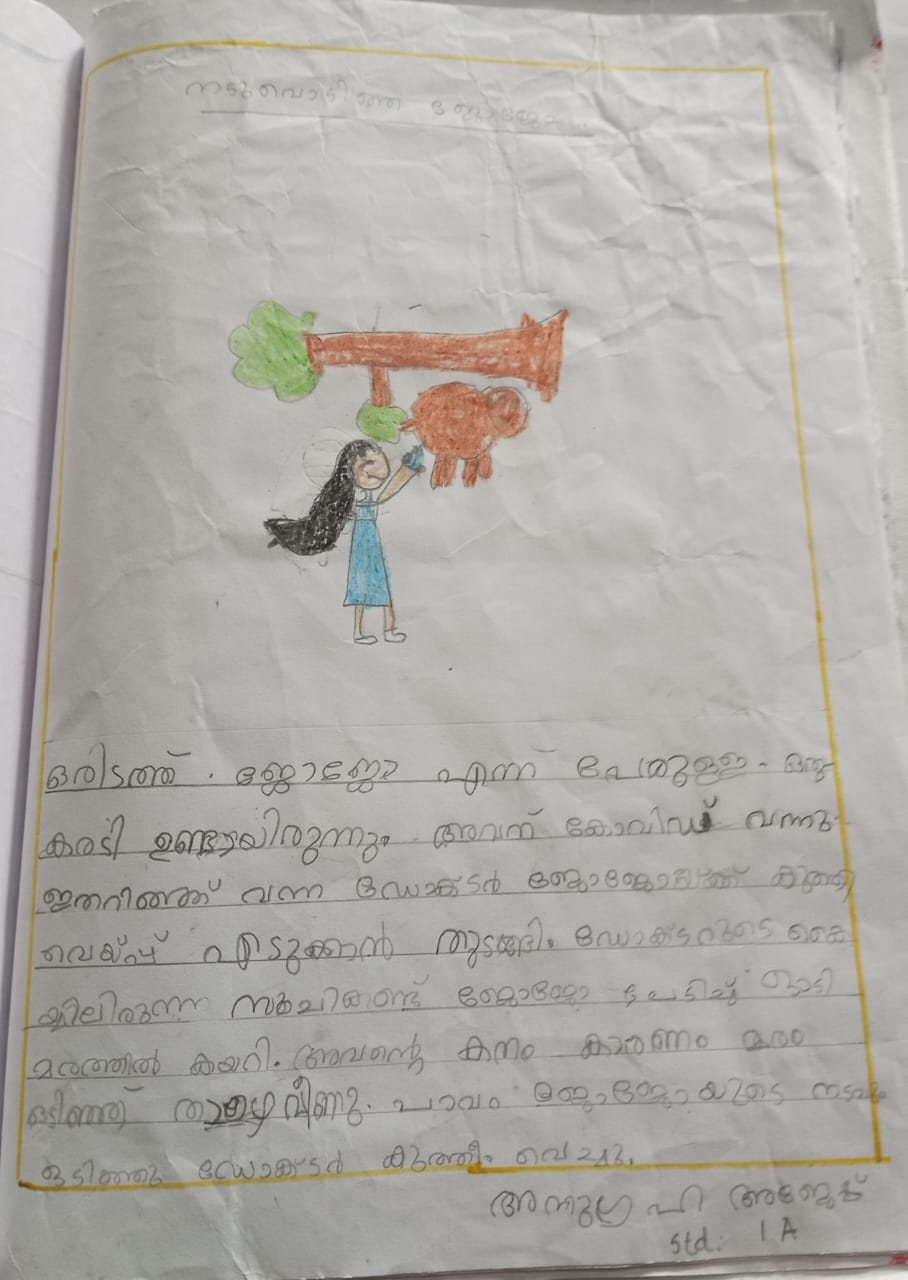 നടുവൊടിഞ്ഞ ജോജോ
ഒരിടത്ത് . ജോജോ എന്ന് പേരുള്ള ഒരു
കരടി ഉണ്ടായിരുന്നു. അവന് കോവിഡ് വന്നു.
ഇതറിഞ്ഞ് വന്ന ഡോക്ടർ ജോജോയ്ക്ക് കുത്തി
വെയ്പ്പ് എടുക്കാൻ തുടങ്ങി. ഡോക്ടറുടെ കൈ
യിലിരുന്ന സൂചികണ്ട് ജോജോ പേടിച്ച് ഓടി
മരത്തിൽ കയറി. അവന്റെ കനം കാരണം മരം
ഒടിഞ്ഞ് താഴെ വീണു. പാവം ജോജോയുടെ നടുവും
ഒടിഞ്ഞു ഡോക്ടർ കുത്തീം വെച്ചു.
പി
std. I A